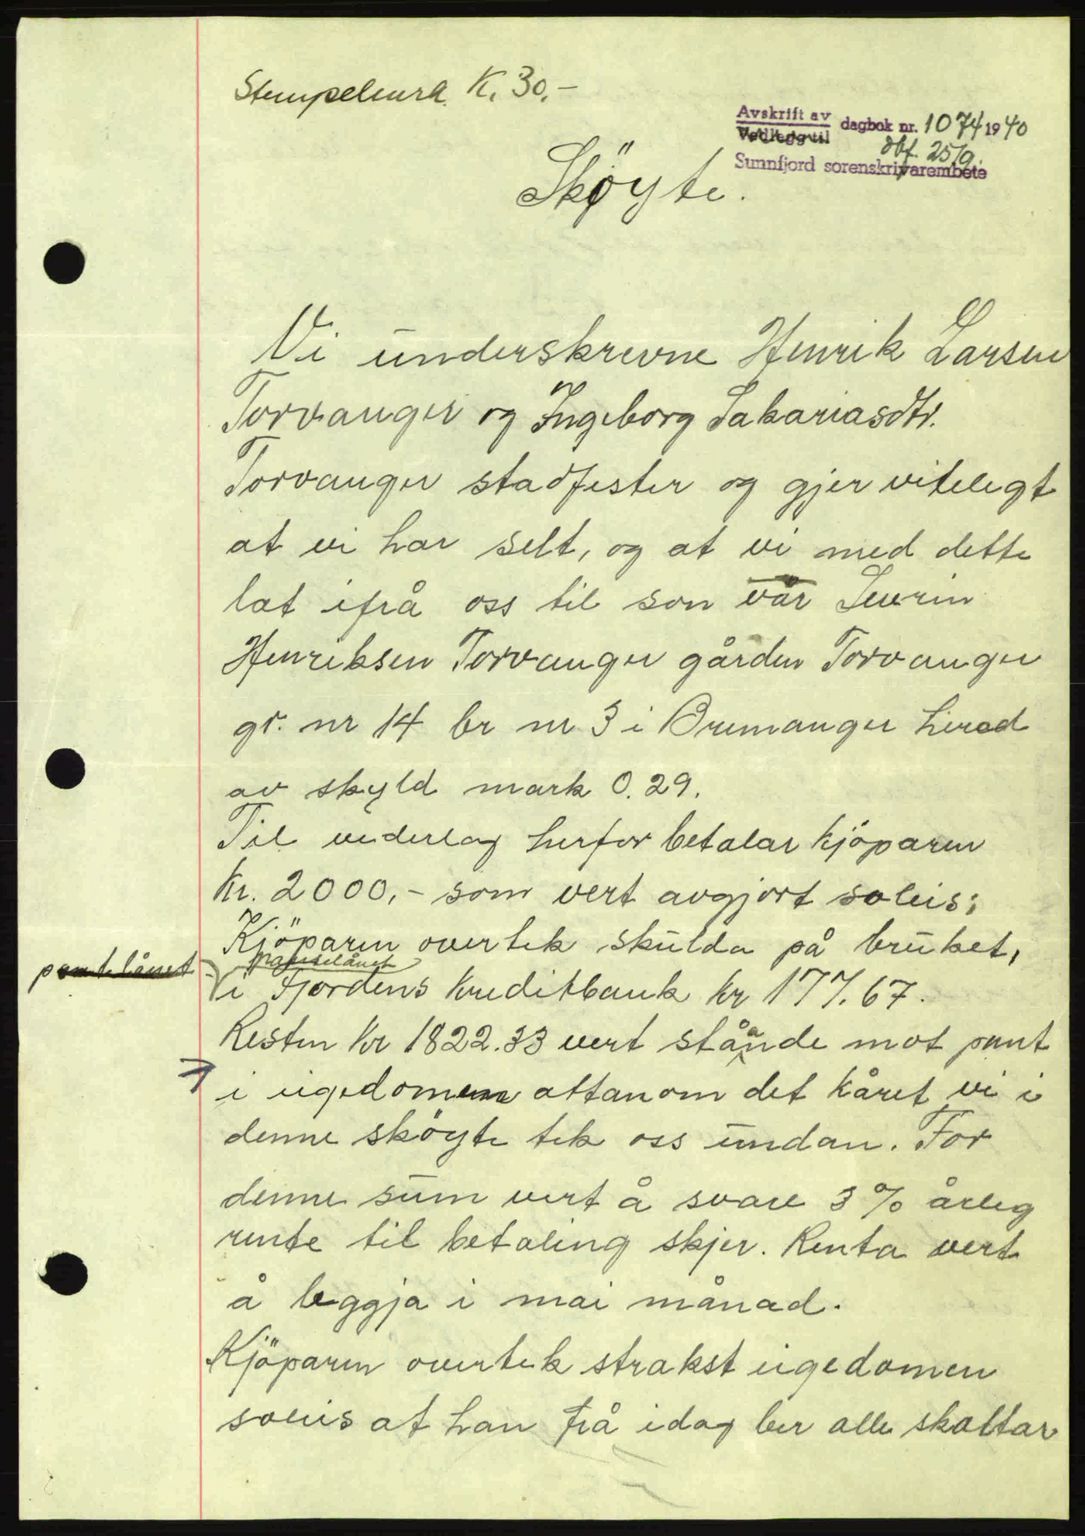 Stempelmrk K. 30.-
Avskrift av
Vedlegg til
dagbok nr. 1074 1940
dbf. 25/9.
Sunnfjord sorenskrivarembete
Sköyte.
Vi underskrevne Henrik Larsen
Torvanger og Ingeborg Sakariasdtr.
Torvanger stadfester og gjer vitelegt
at vi har selt, og at vi med dette
læt ifrå oss til son vår Severin
Henriksen Torvanger gården Torvanger
gr. nr 14 br nr 3 i Bremanger herad
av skyld mark 0.29.
Til vederlag herfor betalar kjöparen
kr. 2000,- som vert avgjort soleis:
Kjöparen overtek skulda på bruket,
pantelånet
pantelånet
i Fjordens Kreditbank kr 177.67.
Resten kr 1822.33 vert ståande mot pant
i eigedomen attanom det kåret vi i
denne sköyte tek oss undan. For
denne sum vert å svare 3% årleg
rente til betaling skjer. Renta vert
å leggja i mai månad.
Kjöparen overtek strakst eigedomen
soleis at han frå idag ber alle skattar